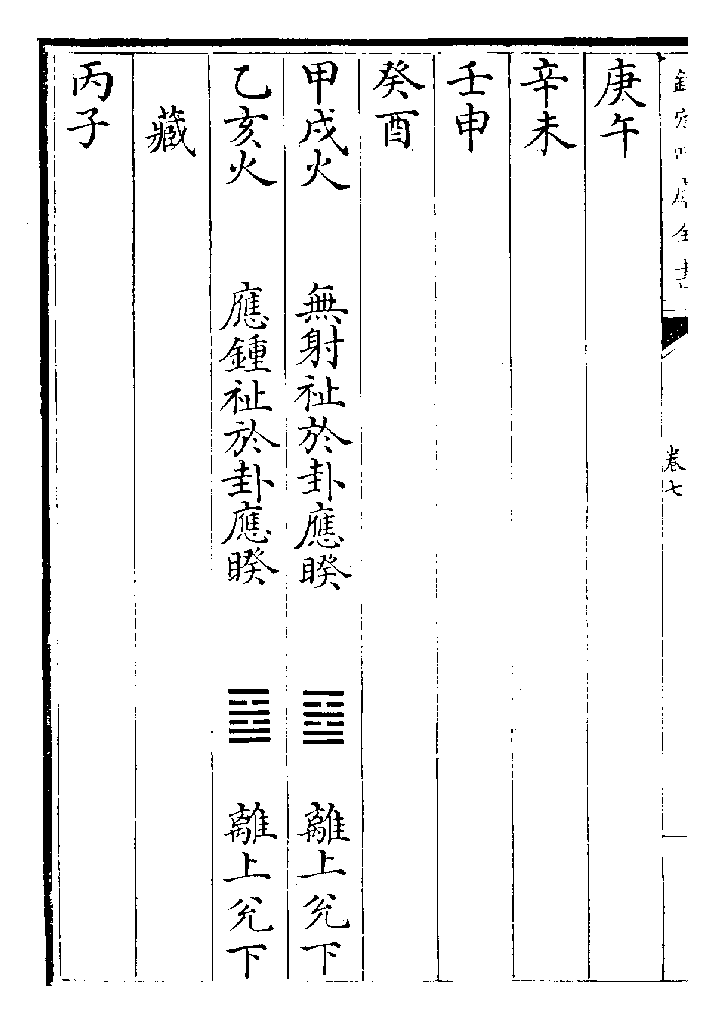 欽定四庫全書
卷七
庚午
辛未
壬申
癸酉
甲戌火 無射祉於卦應睽 ䷥ 離上兊下
乙亥火 應鍾祉於卦應睽 ䷥ 離上兊下
藏
丙子